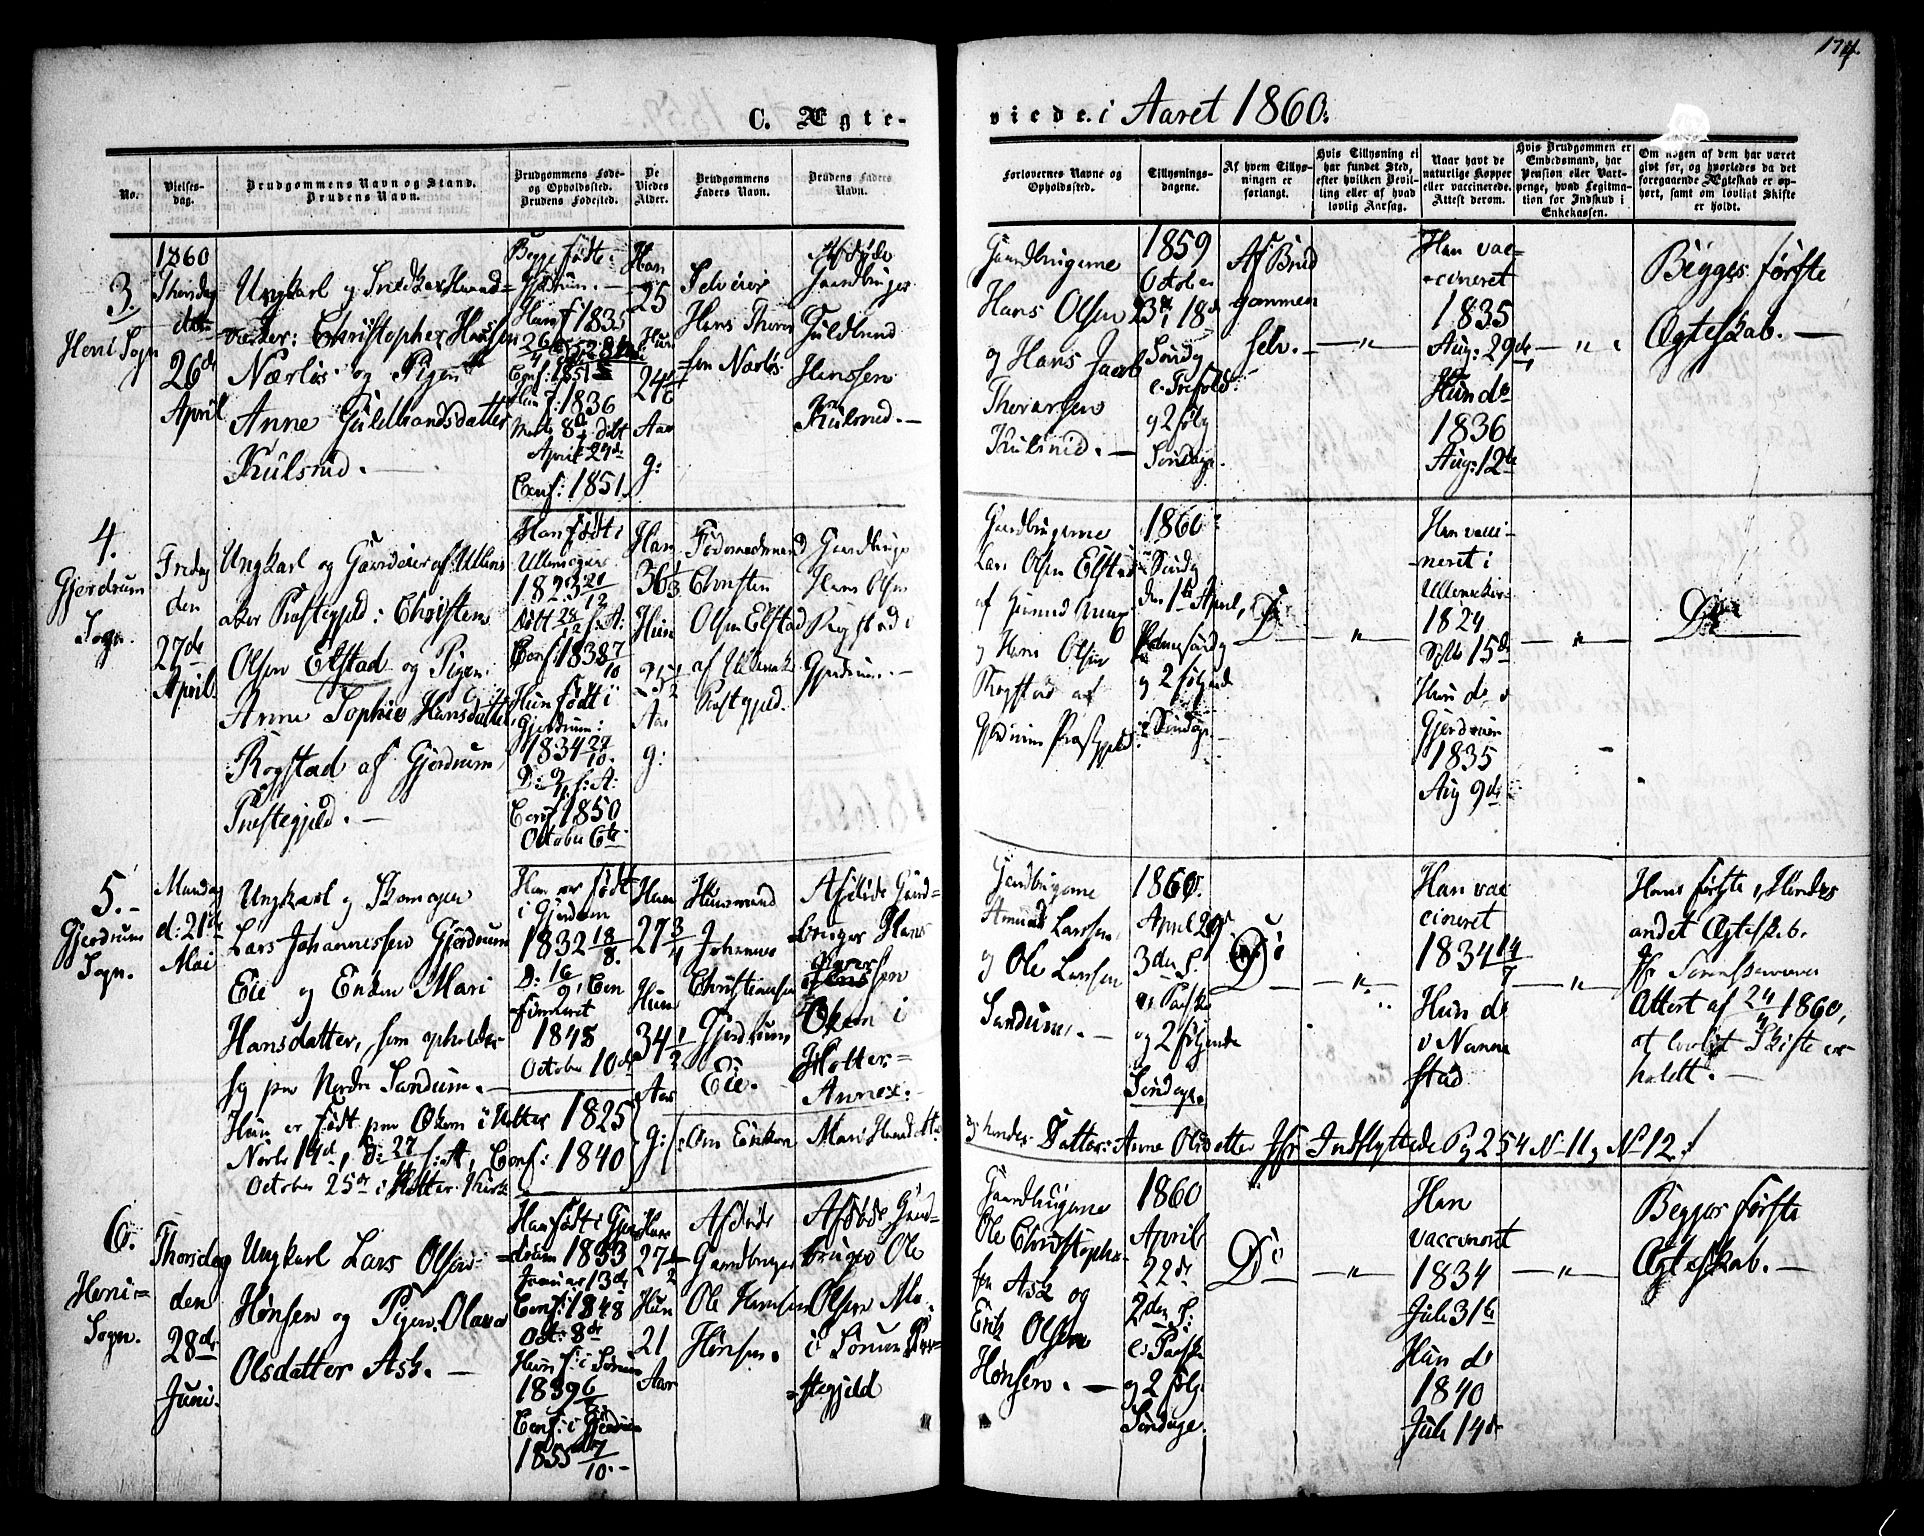 174.
C. Ægte-
viede. i Aaret 1860.
No.
Vielses-
dag.
Brudgommens Navn og Stand.
Brudens Navn.
Brudgommens Føde-
og Opholdssted.
Brudens Fødested.
De
Viedes
Alder.
Brudgommens
Faders Navn.
Brudens Faders
Navn.
Forlovernes Navne og
Opholdssted.
Tillysnings-
dagene.
Af hvem Tillys-
ningen er
forlangt.
Hvis Tillysning ei
har fundet Sted,
efter hvilken Bevil-
ling eller af hvad
lovlig Aarsag.
Naar havt de
naturlige Kopper
eller vaccinerede.
Attest derom.
Hvis Brudgommen er
Embedsmand, har
Pension eller Vart-
penge, hvad Legitima-
tion for Indskud i
Enkekassen.
Om nogen af dem har været
givt før, og hvorledes da det
foregaaende Ægteskab er op-
hørt, samt om lovligt Skifte
er holdt.
3.
Heni Sogn
1860
Thorsdag
den
26de
April
Ungkarl og Snedker Haand-
værker: Christopher Hansen
Nærløs og Pigen
Anne Guldbrandsdatter
Kulsrud.
Begge fødte i
Gjerdrum.
Han f. 1835
Conf: 1851
Hun f: 1836
Marts 8d døbt
April 24d
Conf: 1851.
Han
25
Hun
24
Aar
g:
Selveier
Hans Thor
sen Nærløs
Afdøde
Gaardbruger
Guldbrand
Hanssen
Kulsrud.
Gaardbrugerne
Hans Olsen
og Hans Jacob
Thorarsen
Kulsrud.
1859
October
23de 18de
Søndg
e. Trefold
og 2 følg
Søndage.
Af Brud
gommen
selv.
"
Han vac-
cineret
1835
Aug: 29de
Hun do
1836
Aug: 12te
"
Begges første
Ægteskab.
4.
Gjerdrum
Sogn.
Fredag
den
27de
April
Ungkarl og Gaardeier af Ullens
aker Præstegjeld: Christen
Olsen Elstad og Pigen
Anne Sophie Hansdatter
Rogstad af Gjerdrum
Præstegjeld.
Han født i
Ullensager
1823 21/12
Conf 1838 7/10
Hun født i
Gjerdrum:
1834 27/10.
D: 9/11 s: A:
Conf 1850
October 6te
Han
36 1/3
Hun
25 1/2
Aar
g:
Føderaadsmand
Christen
Olsen Elstad
af Ullensak
Præstgjeld.
Gaardbruger
Hans Olsen
Rogstad i
Gjerdrum.
Gaardbrugerne
Lars Olsen Elstad
og Hans Olsen
Rogstad af
Gjerdrum Præstegjeld.
1860
Søndg
den 1te April,
Palmesøndg
og 2 følgende
Søndage
Do
"
Han vacci-
neret i
Ullensaker
1824
Septb 15de
Hun do i
Gjerdrum
1835
Aug 9de
"
Do
5.
Gjerdrum
Sogn.
Mandag
d: 21de
Mai
Ungkarl og Skomager
Lars Johannessen Gjerdrum
Eie og Enken Mari
Hansdatter, som opholder
sig paa Nordre Sandum.
Hun er født paa Okern i Holter 1825
Novbr 14d, D: 27/ s: A, Conf: 1840
October 25de i Holter Kirke
Han er født
i Gjerdrum
1832 18/8.
D: 16/9, Con
firmeret
1848
October 10de
Han
27 3/4
Hun
34 1/2
Aar
g:
Huusmand
Johannes
Christiansen
Gjerdrum
Eie.
Afdøde Gaard-
bruger Hans
Okern i
Holter
Annex.
Om Enken Mari Hansdttr.
og hendes Datter: Anne Olsdatter Jfr Indflyttede Pg 254 No 11 og No 12.
Gaardbrugerne
Amund Larssen
og Ole Larssen
Sandum.
1860.
April 29de
3die S.
e. Paaske
og 2 følgende
Søndage.
Do
"
Han vac
cineret
1834 14/7
Hun do
v Nanne
stad
"
Hans første, Hendes
andet Ægteskab.
Jfr Sorenskriverens
Attest af 24/4 1860,
at lovligt Skifte er
holdt.
6.
Heni-
Sogn.
Thorsdag
den
28de
Juni.
Ungkarl Lars Olsen
Hønsen og Pigen Olava
Olsdatter Ask.
Han født i Gjer-
drum 1833
Januar 13de
Conf: 1848
Oct: 8de
Hun f: i Sørum
1839 6/8
Conf: i Gjerdrum
1855 7/10.
Han
27 1/2
Hun
21
Aar
Afdøde
Gaardbruger
Ole Hansen
Hønsen.
Afdøde Gaard-
bruger Ole
Olsen Mo
i Sørum Præ-
stegjeld
Gaardbrugerne
Ole Christopher-
sen Ask og
Erik Olsen
Hønsen.
1860
April
22de
2den S:
e. Paaske
og 2 følg.
Søndage.
Do
"
Han
vaccineret
1834
Juli 31te
Hun do
1840
Juli 14de
"
Begges første
Ægteskab.